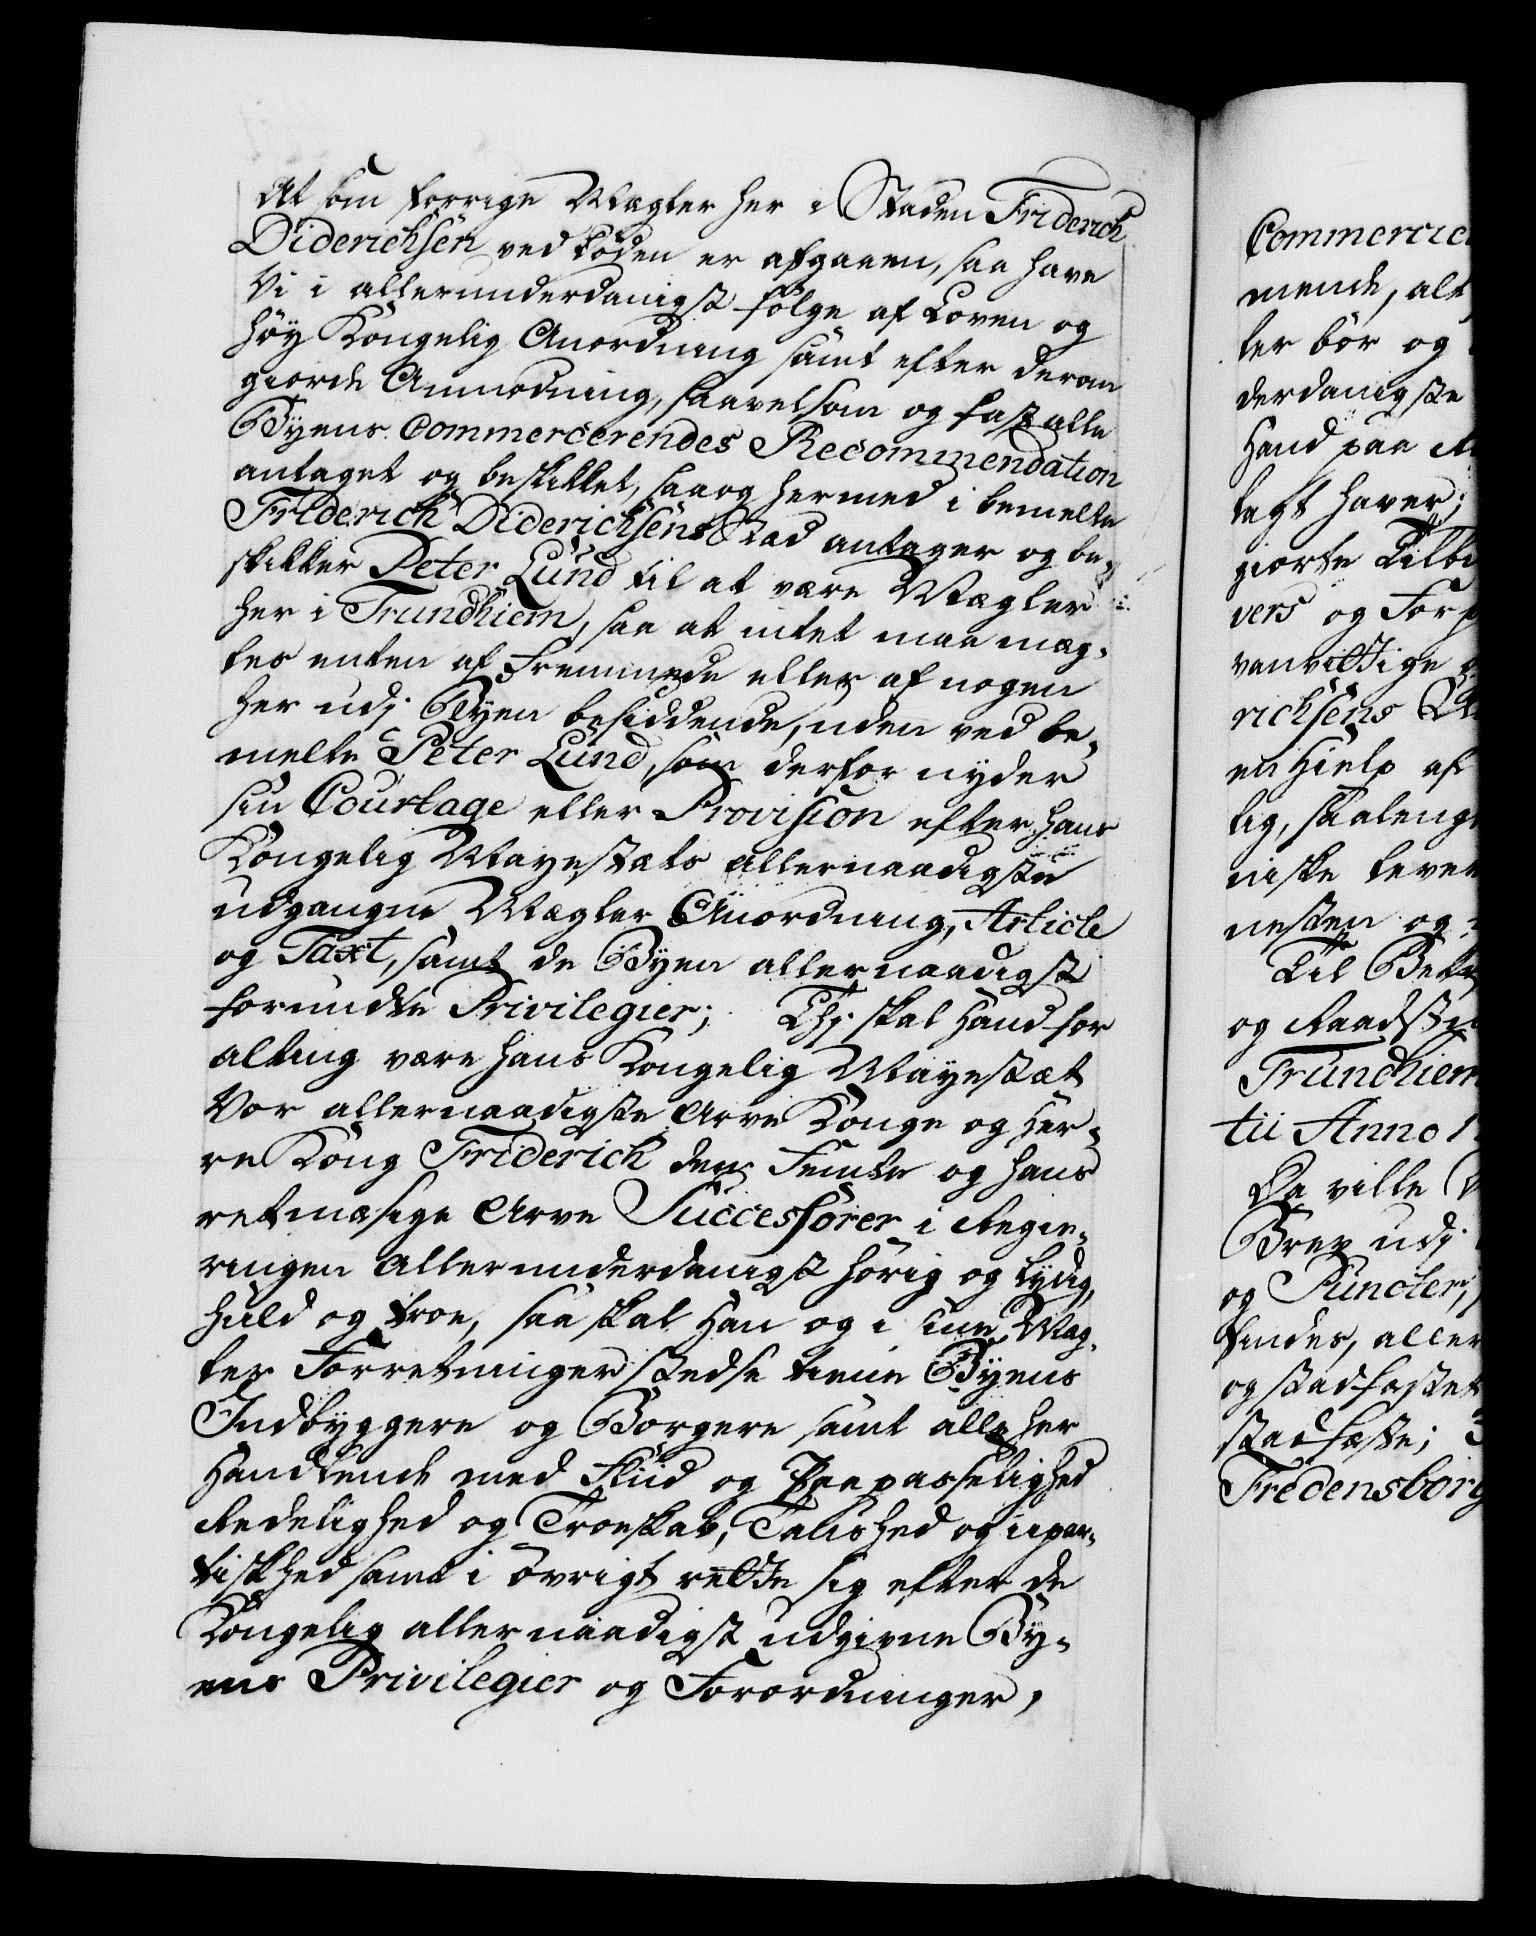 At som forrige Mægler her i Staden Friderich
Diderichsen ved Döden er afgaaen, saa have
Vi i allerunderdanigst fölge af Loven og
höy Kongelig Anordning samt efter derom
giorde Anmodning, saavelsom og fast alle
Byens Commercerendes Recommendation
antaget og beskikket, saa og hermed i bemelte
Friderich Diderichsens Stæd antager og be¬
skikker Peter Lund til at være Mægler
her i Trundhiem, saa at intet maa mæg¬
les enten af Fremmede eller af nogen
her udj Byen besiddende, uden ved be¬
melte Peter Lund, som derfor nyder
sin Courtage eller Provision efter hans
Kongelig Mayestæts allernaadigste
udgangne Mægler Anordning, Article
og Taxt, samt de Byen allernaadigst
forundte Privilegier; Thj skal Hand for
alting være hans Kongelig Mayestæt
Vor allernaadigste Arve Konge og Her¬
re Kong Friderich den Femte og hans
retmæsige Arve Successorer i Regie¬
ringen allerunderdanigst hörig og lydig,
huld og troe, saa skal Han og i sine Mæg¬
ler Forretninger stedse tiene Byens
Indbyggere og Borgere samt alle her
Handlende med Fliid og Paapasselighed
Redelighed og Troeskab, Taushed og upar¬
tiskhed samt i övrigt rette sig efter de
Kongelig allernaadigst udgivne By¬
ens Privilegier og Forordninger,
Commercie
mende, alt
ler bör og
derdanigste
Hand paa
lagt haver;
giorte Tilb
vers og For
vanvittige
richsens
en Hielp af
lig, saalenge
niske leve
nesten og
Til Bek
og Raadst
Trundhiem
tii Anno 1
Da ville V
Brev udj
og Puncter,
findes, aller
og stadfæstet
stadfæste;
Fredensborg